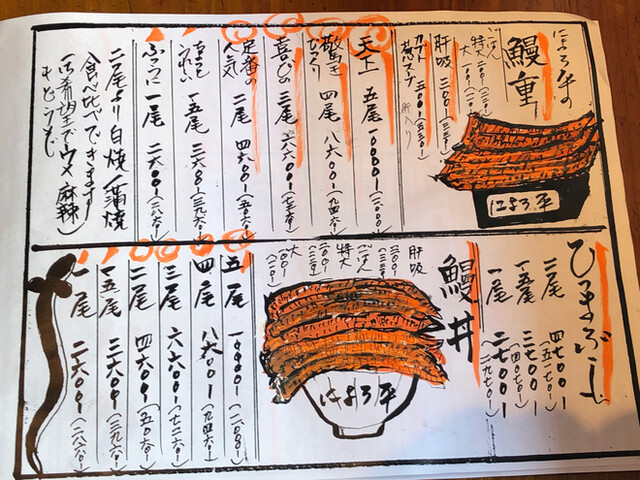 にょろ平の
鰻重
ごはん
特大 三〇〇(三三〇)
大 一〇〇(一一〇)
肝吸 三〇〇(三三〇)
肝入り
天上 五尾 一〇〇〇〇(一一〇〇〇)
驚き
びっくり 四尾 八六〇〇(九四六〇)
喜びの 三尾 六六〇〇(七二六〇)
定番の
人気 二尾 四六〇〇(五〇六〇)
ちょっと
うれしい 一五尾 三六〇〇(三九六〇)
ふつうに 一尾 二六〇〇(二八六〇)
二尾より 白焼/蒲焼
食べ比べできます
(ご希望でウメ 麻辣)
もどうも
にょろ平
ひつまぶし
二尾 四七〇〇(五一七〇)
一五尾 三七〇〇(四〇七〇)
一尾 二七〇〇(二九七〇)
鰻丼
肝吸
三〇〇(三三〇)
ごはん
特大
三〇〇(三三〇)
大
一〇〇(一一〇)
にょろ平
五尾 一〇〇〇〇(一一〇〇〇)
四尾 八六〇〇(九四六〇)
三尾 六六〇〇(七二六〇)
二尾 四六〇〇(五〇六〇)
一五尾 三六〇〇(三九六〇)
一尾 二六〇〇(二八六〇)